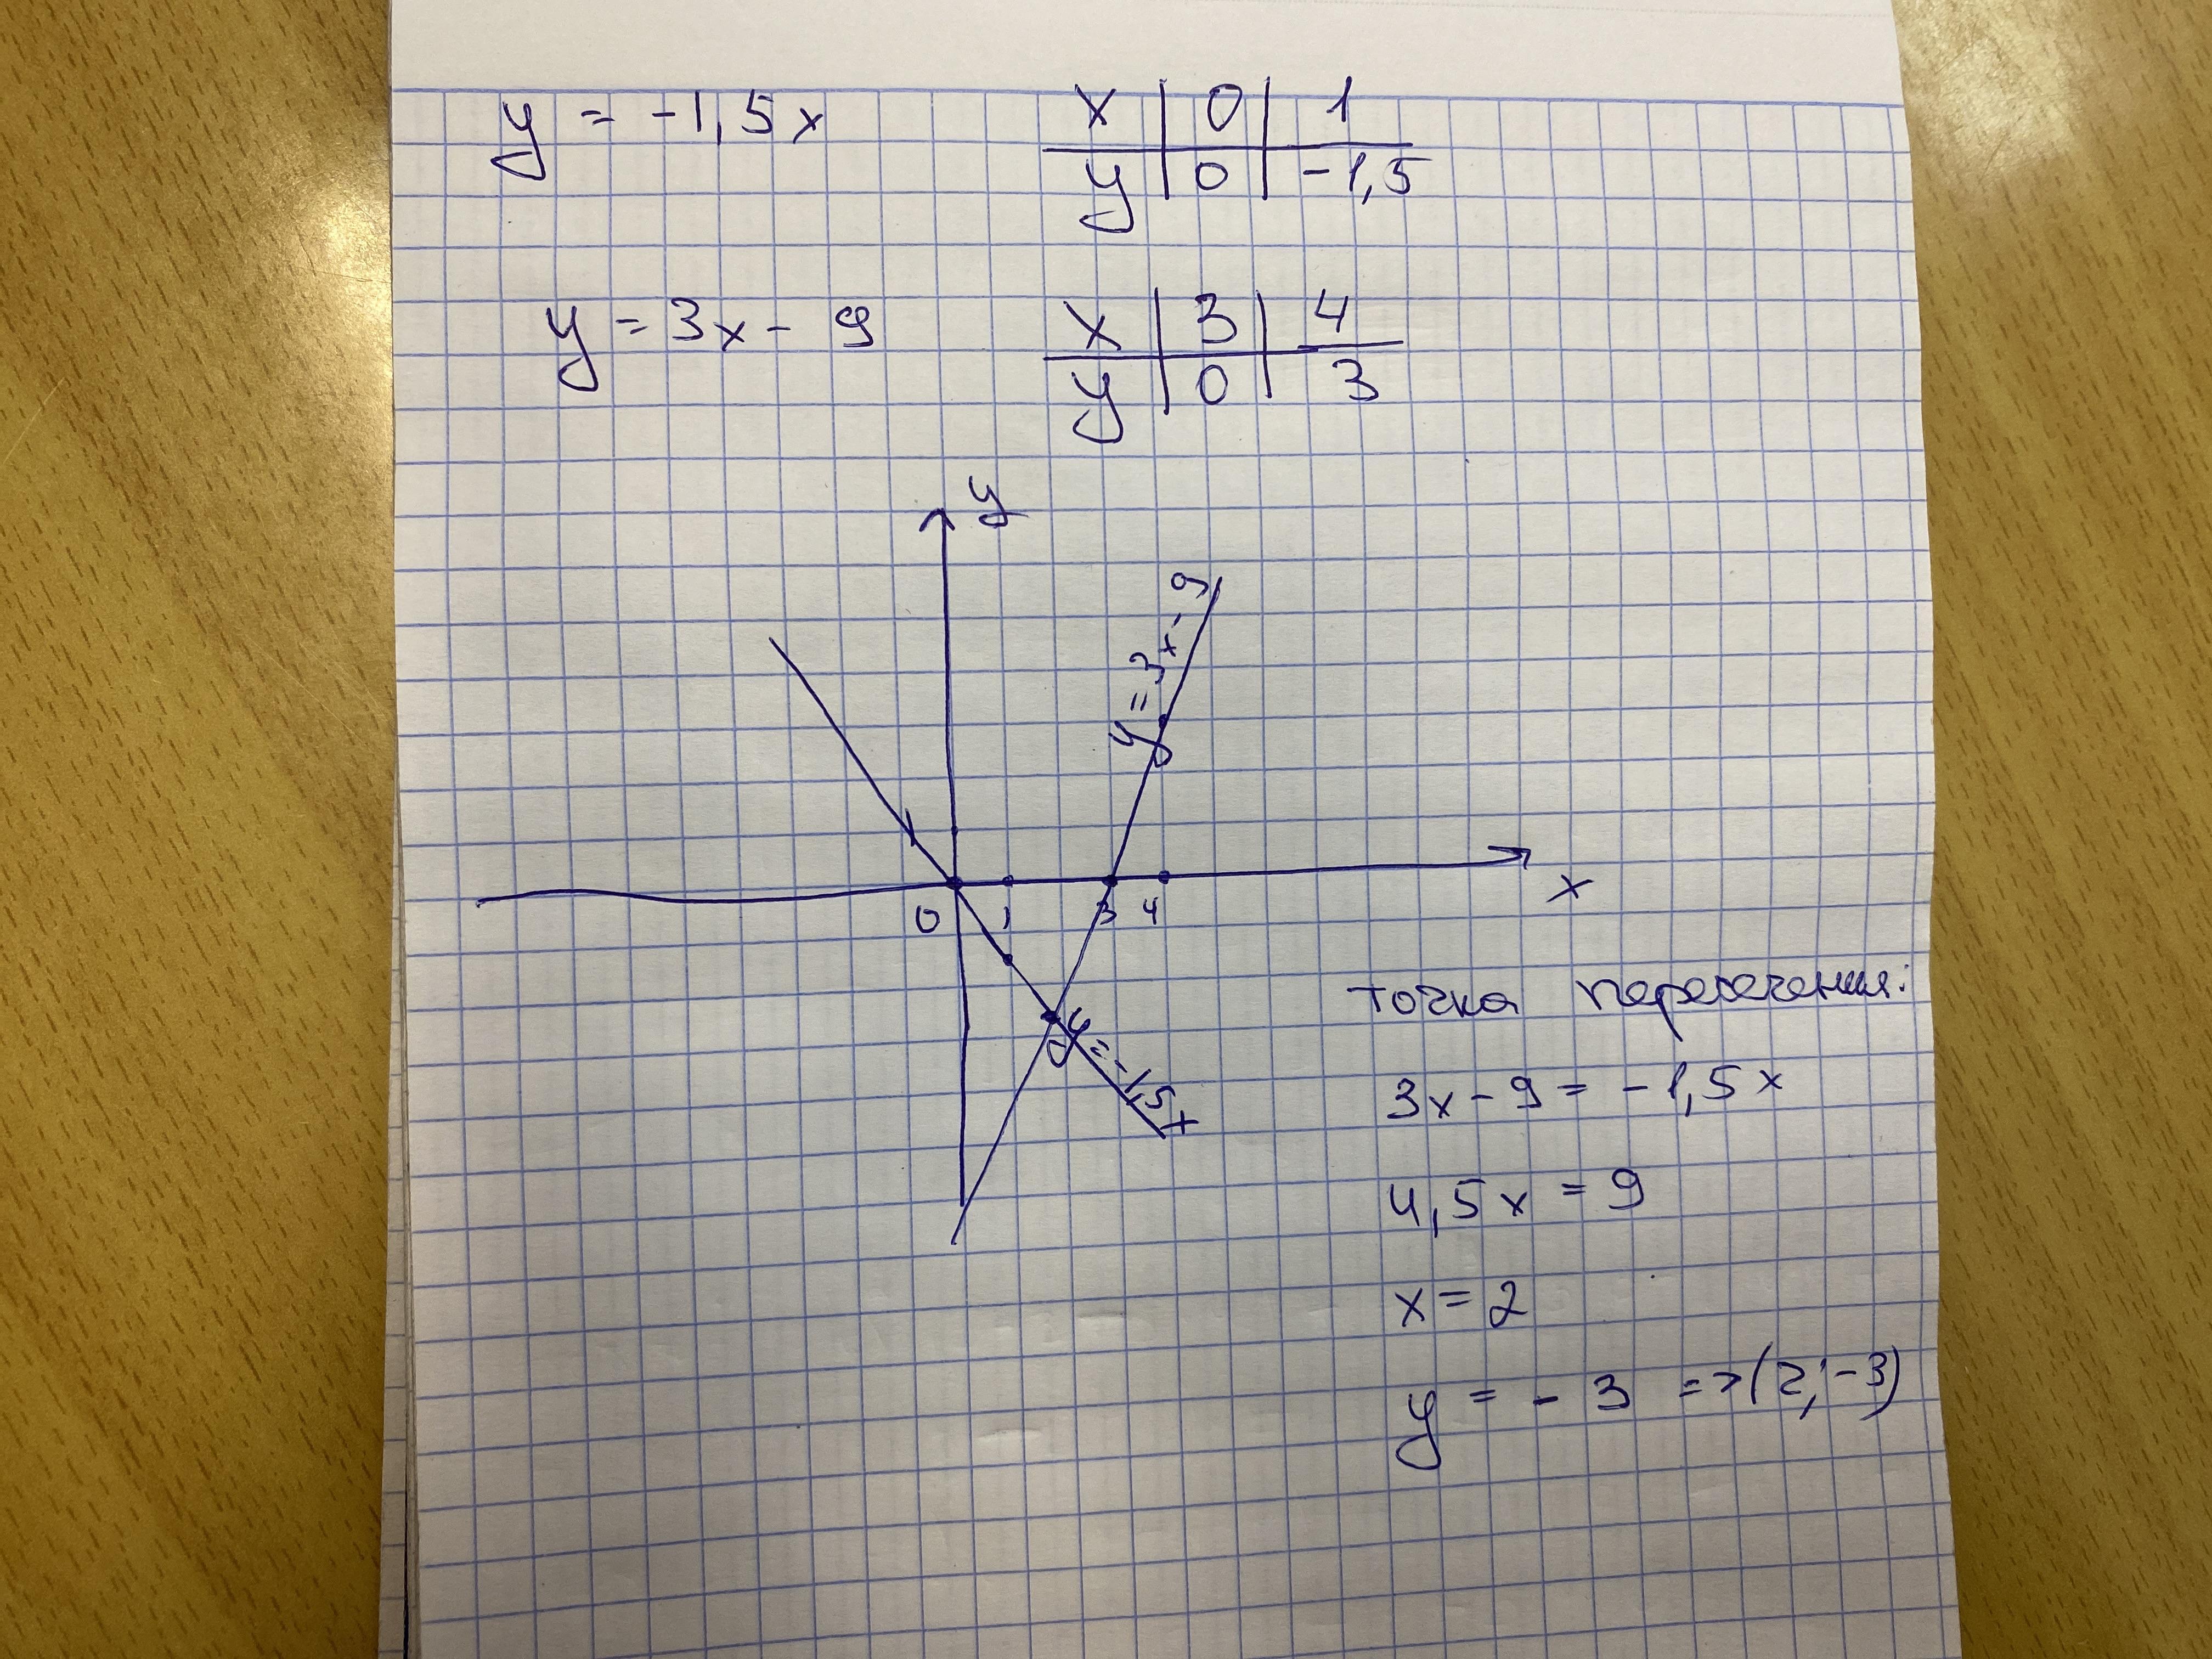 y = -1,5x
x | 0 | 1
y | 0 | -1,5
y = 3x - 9
x | 3 | 4
y | 0 | 3
y
y = 3x - 9
1
x
0 1 3 4
y = -1,5x
точка пересечения:
3x - 9 = -1,5x
4,5x = 9
x = 2
y = -3 => (2; -3)